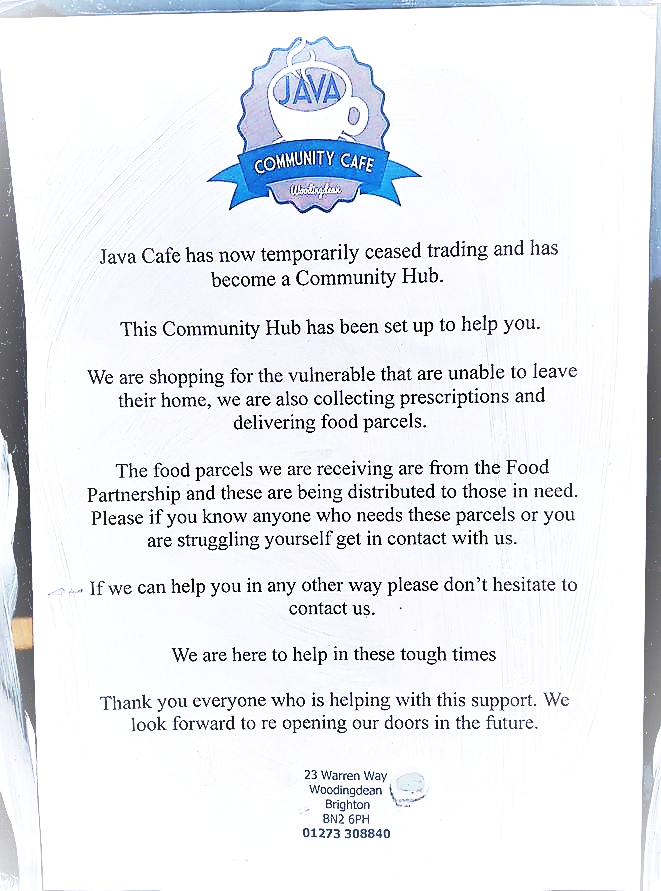 JAVA
COMMUNITY CAFE
Woodingdean
Java Cafe has now temporarily ceased trading and has
become a Community Hub.
This Community Hub has been set up to help you.
We are shopping for the vulnerable that are unable to leave
their home, we are also collecting prescriptions and
delivering food parcels.
The food parcels we are receiving are from the Food
Partnership and these are being distributed to those in need.
Please if you know anyone who needs these parcels or you
are struggling yourself get in contact with us.
If we can help you in any other way please don't hesitate to
contact us.
We are here to help in these tough times
Thank you everyone who is helping with this support. We
look forward to re opening our doors in the future.
23 Warren Way
Woodingdean
Brighton
BN2 6PH
01273 308840